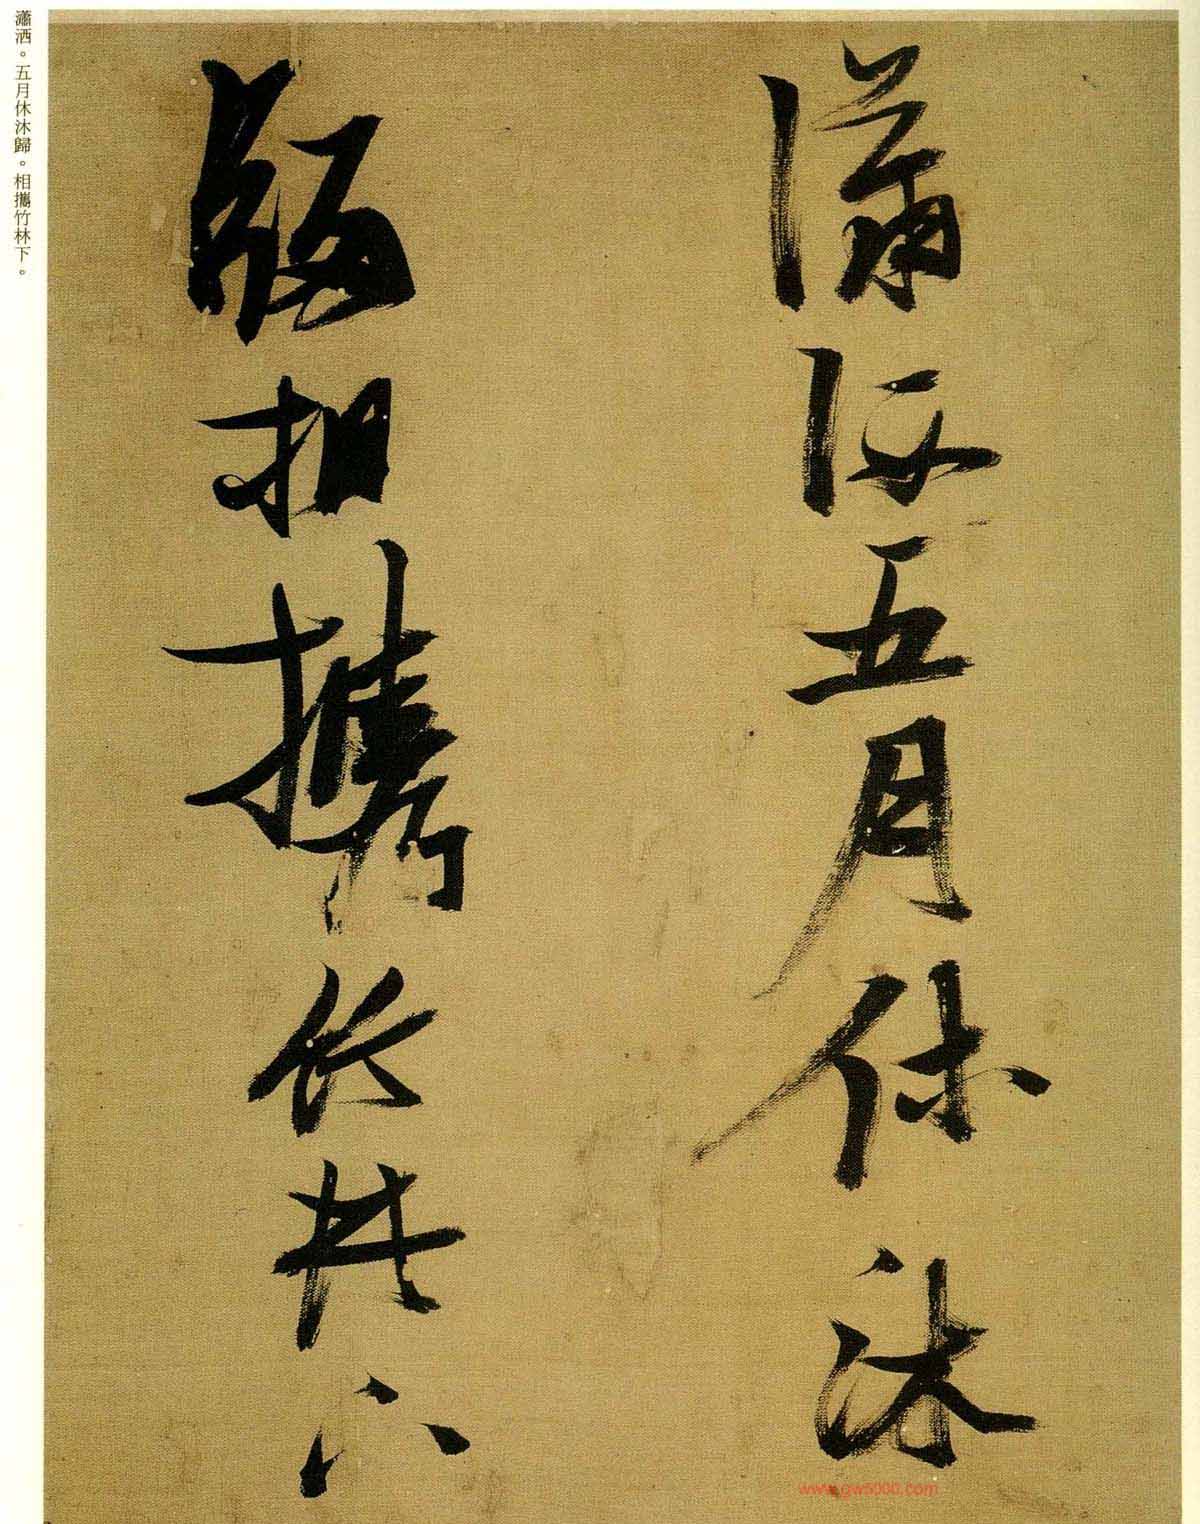 瀟洒五月休沐
歸相攜竹林下
瀟洒。五月休沐歸。相攜竹林下。
www.gw5000.com